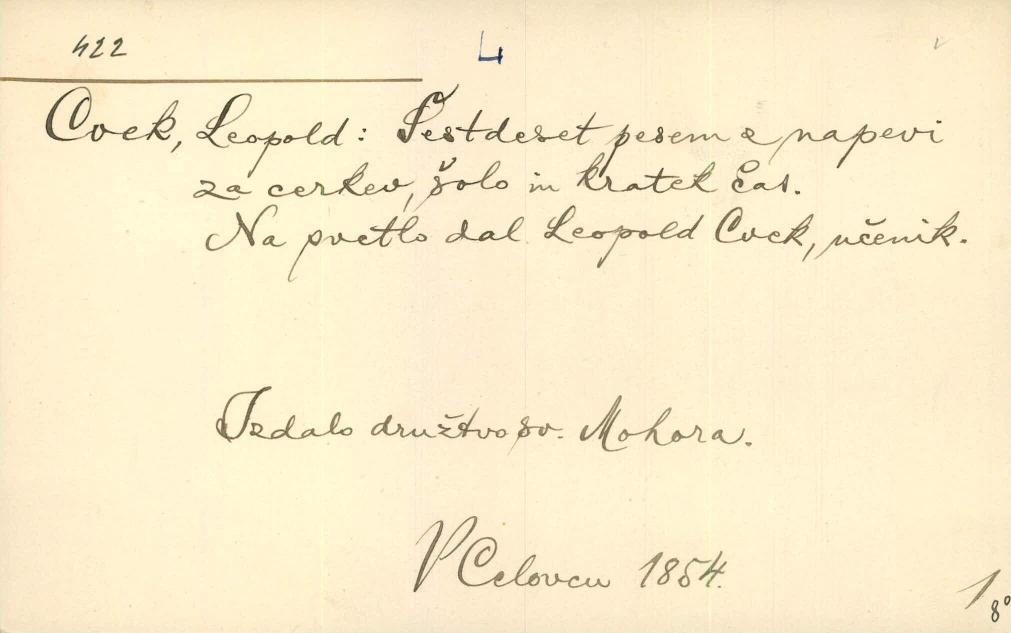 422
L
Cvek, Leopold: Šestdeset pesem z napevi
za cerkev, šolo in kratek čas.
Na svetlo dal Leopold Cvek, učenik.
Izdalo družtvo sv. Mohora.
V Celovcu 1854.
8°